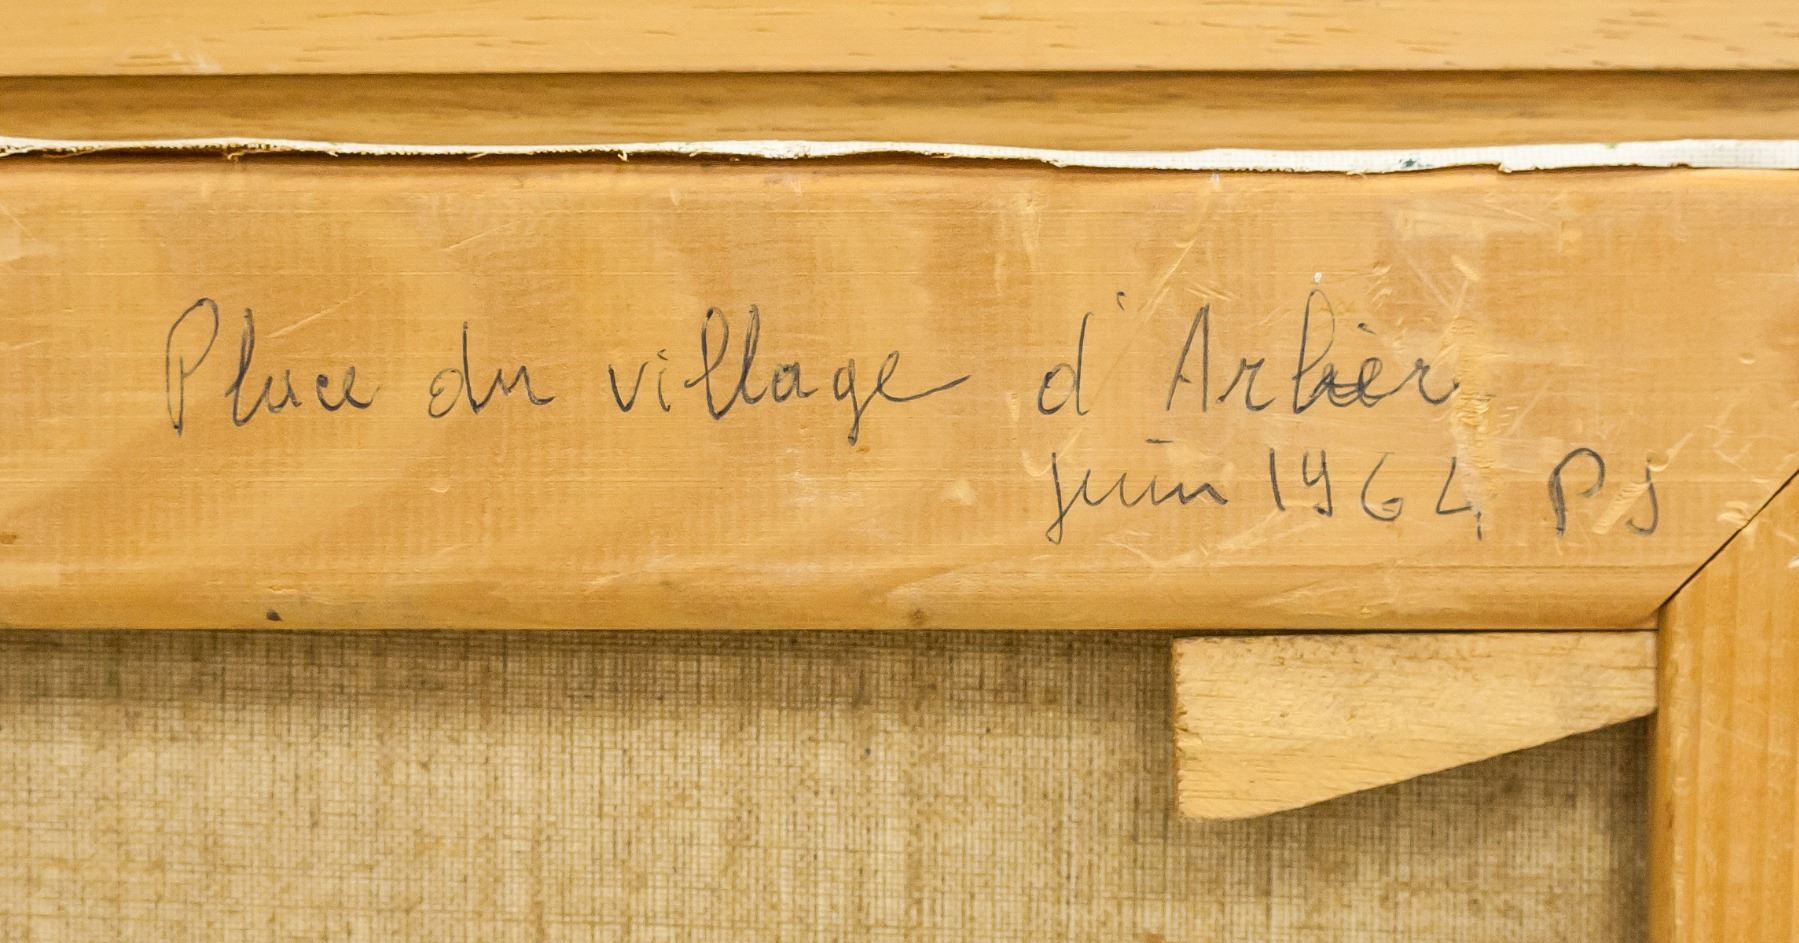 Place du village d'Arbèr
juin 1964 PJ